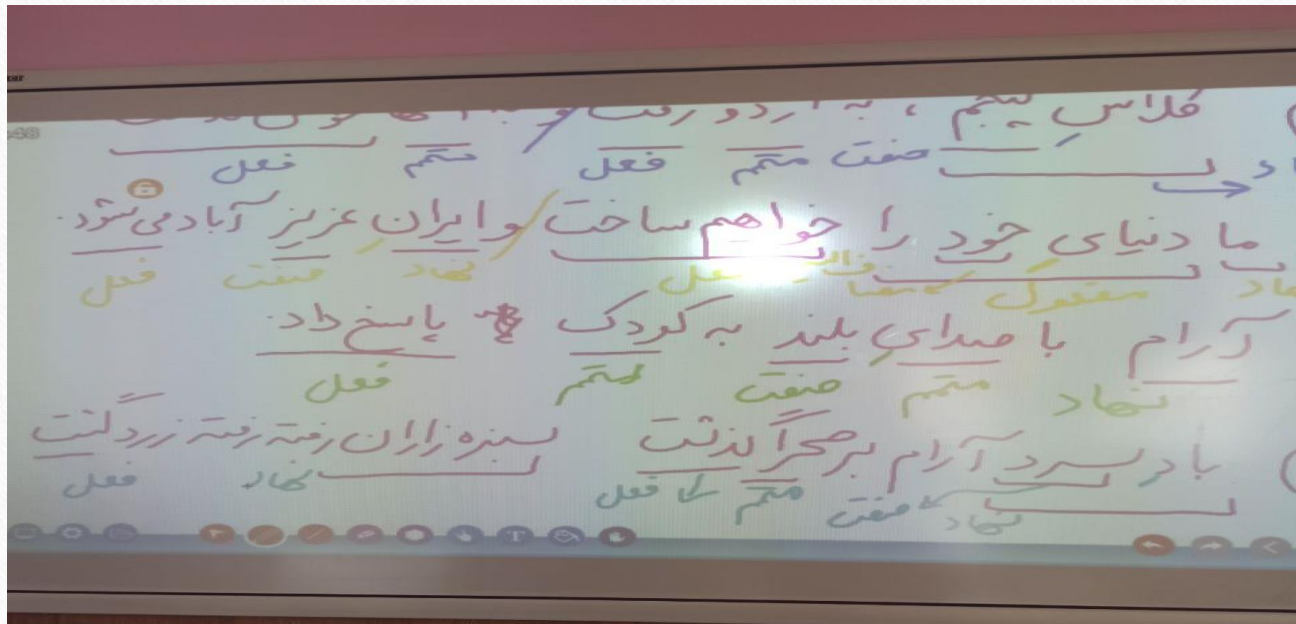 کلاس پنجم ، به اردو رفت و به آنها خوش گذشت
صفت متمم فعل متمم فعل
ما دنیای خود را خواهیم ساخت و ایران عزیز آباد می‌شود.
نهاد مفعول مضاف‌الیه فعل نهاد صفت فعل
آرام با صدای بلند به کودک پاسخ داد.
نهاد متمم صفت متمم فعل
باد سرد آرام بر صحرا گذشت سبزه زاران رفته رفته زرد گشت
نهاد صفت متمم فعل نهاد فعل
:48